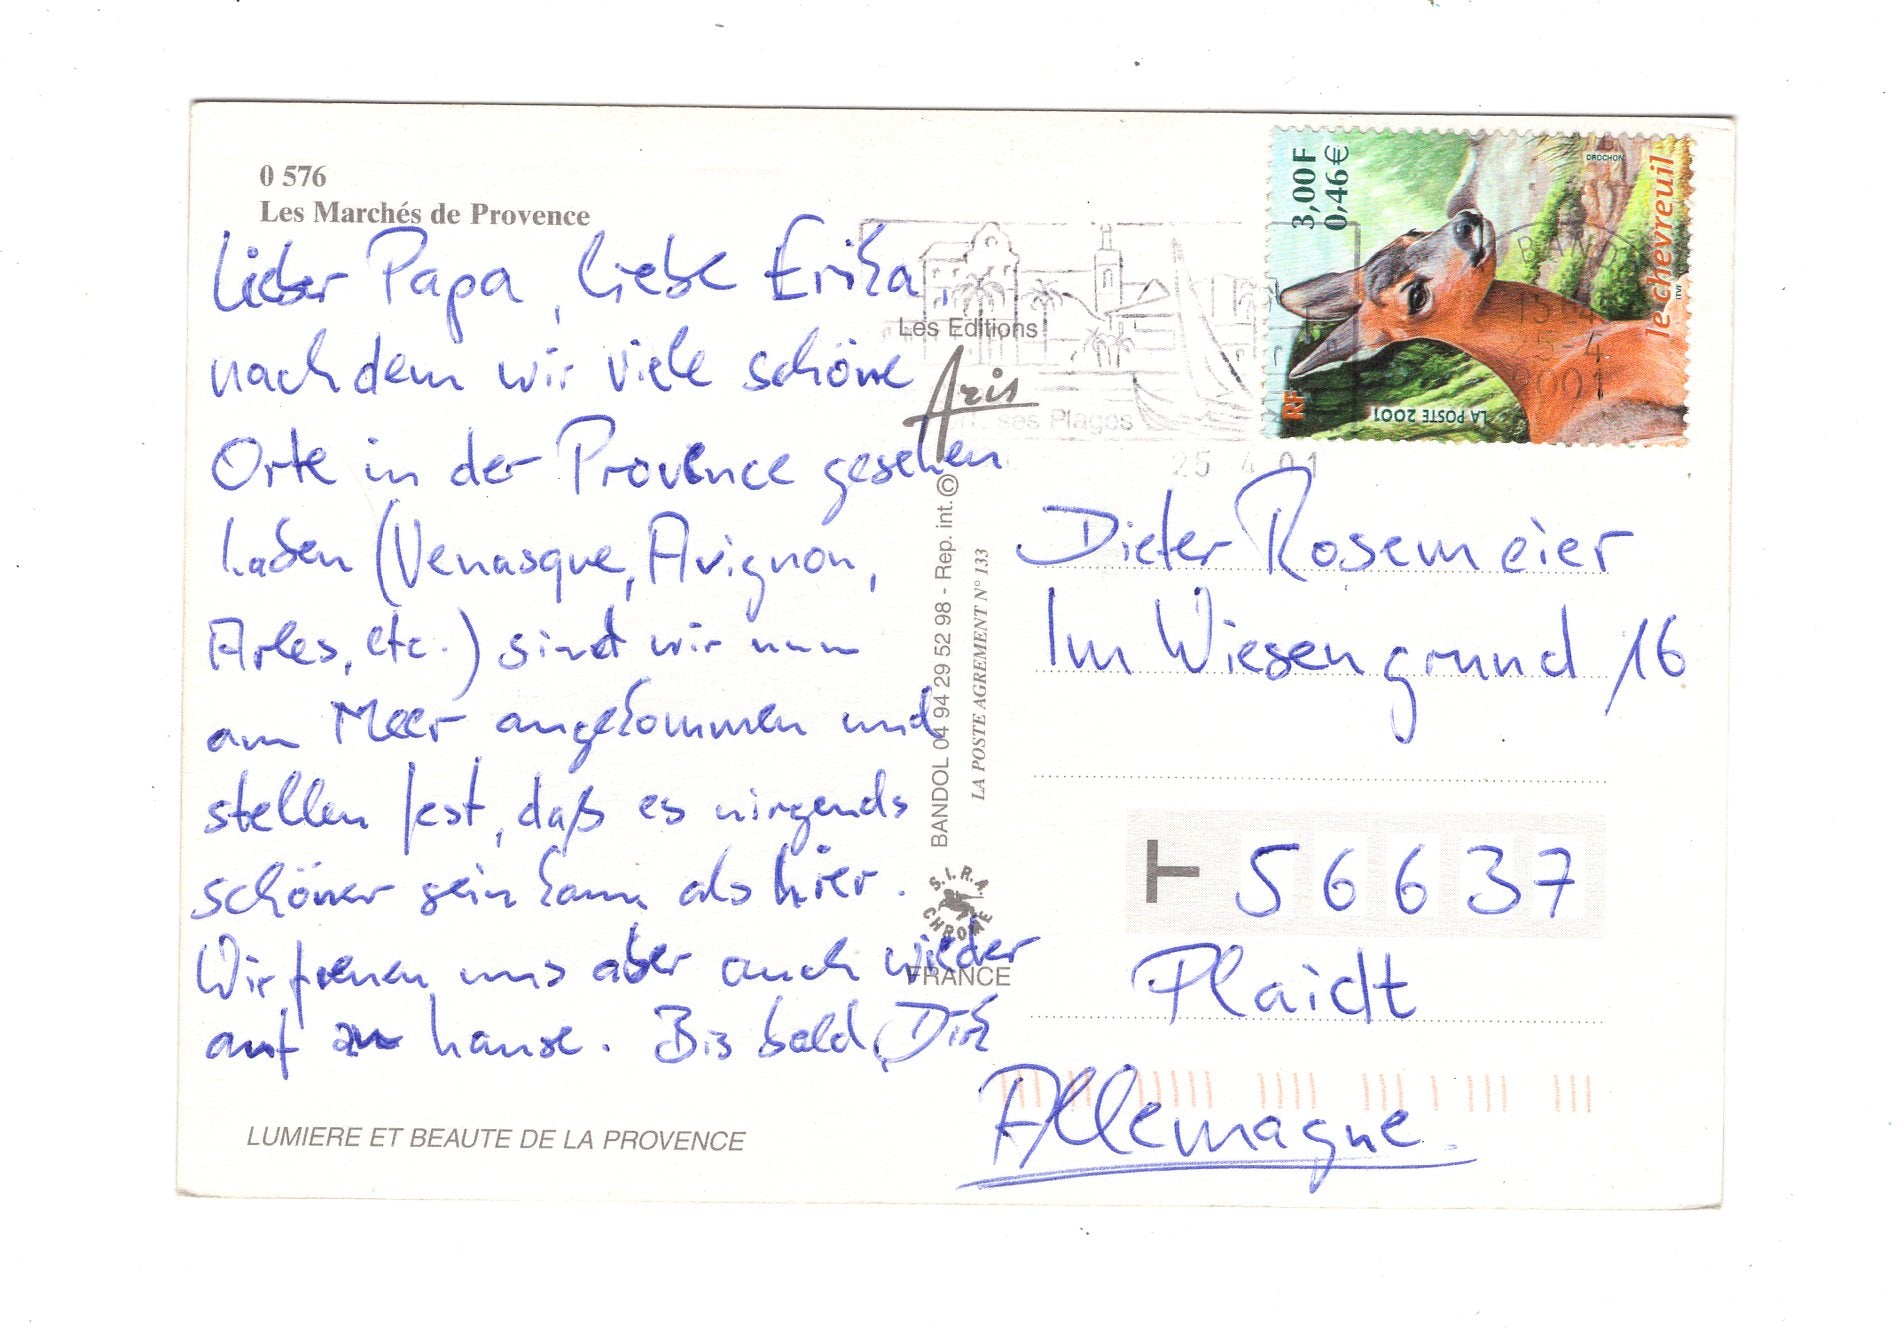 0 576
Les Marchés de Provence
Lieber Papa, liebe Erika,
nachdem wir viele schöne
Orte in der Provence gesehen
haben (Venasque, Avignon,
Arles, etc.) sind wir nun
am Meer angekommen und
stellen fest, daß es nirgends
schöner sein kann als hier.
Wir freuen uns aber auch wieder
auf zu hause. Bis bald, Dirk
LUMIERE ET BEAUTE DE LA PROVENCE
Les Editions
Aris
BANDOL 04 94 29 52 98 - Rep. int. ©
LA POSTE AGREMENT N° 133
S.I.R.A.
CHROME
FRANCE
ses Plages
25 4 01
3,00F
0,46€
RF
LA POSTE 2001
le chevreuil
DROCHON
ITVF
2001
Dieter Rosemeier
Im Wiesengrund 16
56637
Plaidt
Allemagne.